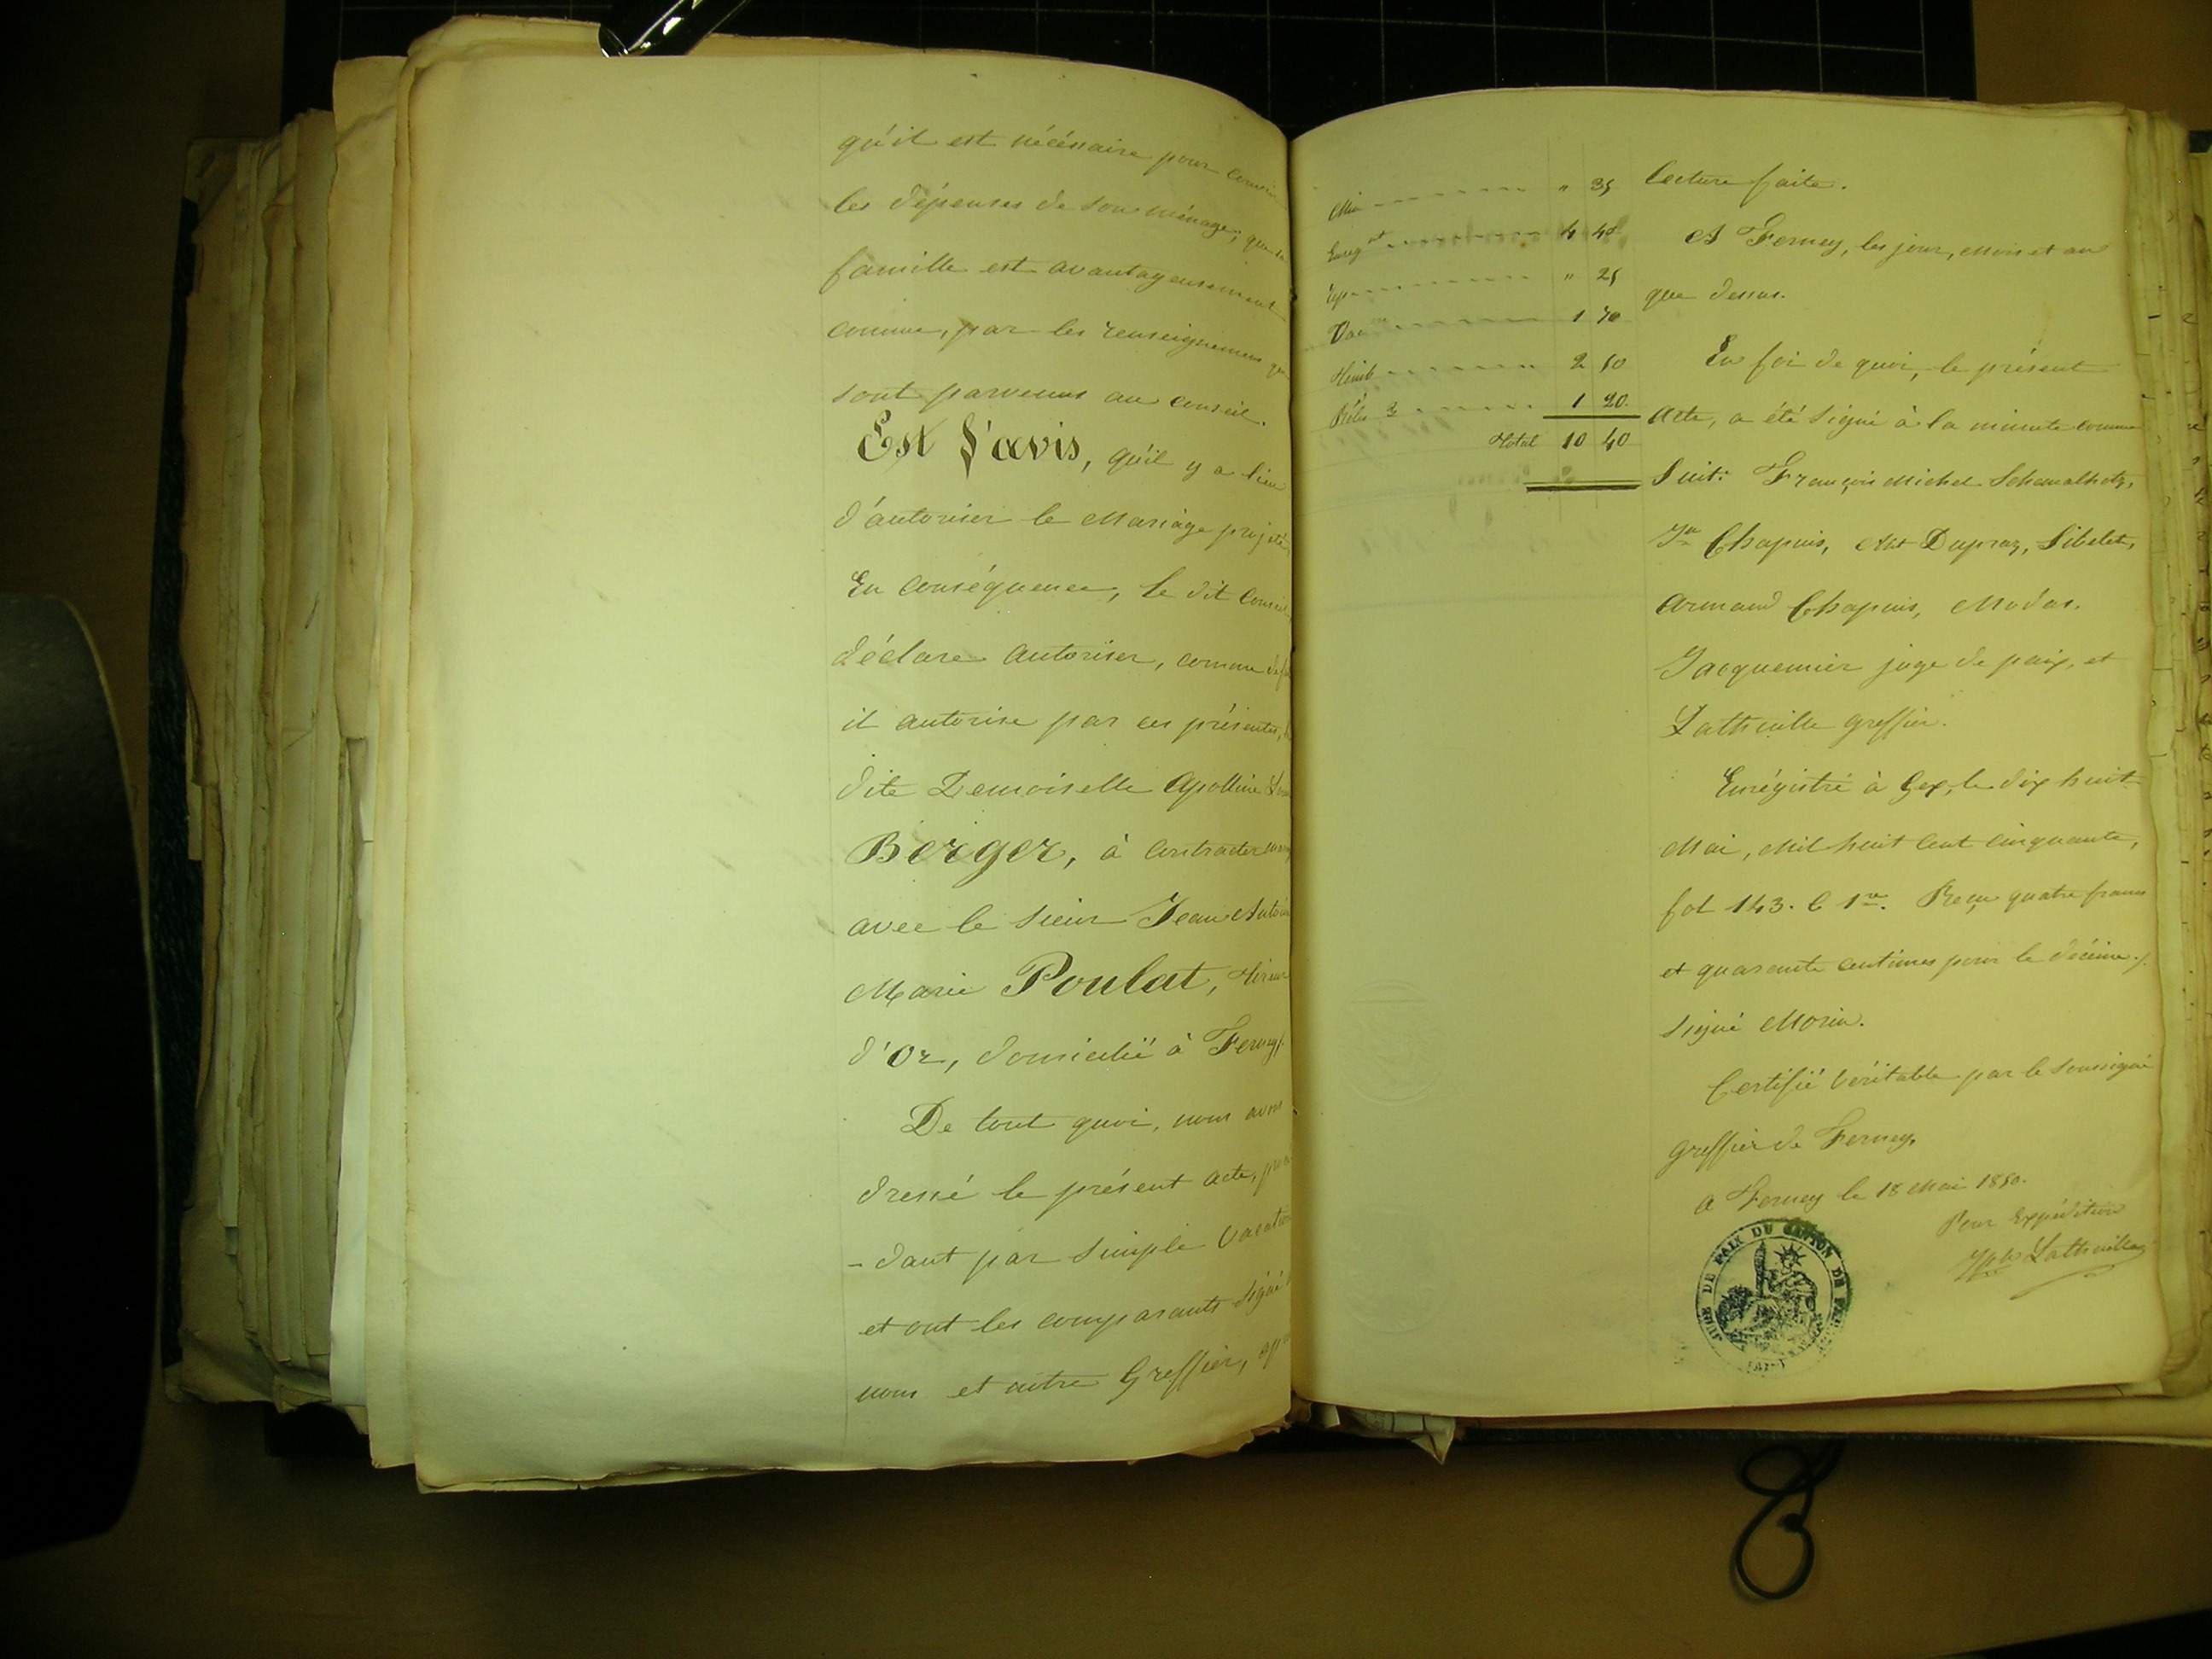 qu'il est nécéssaire pour
les dépenses de son ménage; que sa
famille est avantageusement
connue, par les renseignemens qui
sont parvenus au conseil.
Est d'avis, qu'il y a lieu
d'autoriser le Mariage projeté,
En conséquence, le dit Conseil
déclare autoriser, comme de fait
il autorise par ces présentes, la
dite Demoiselle Apolline
Berger, à contracter
avec le sieur Jean Antoine
Marie Poulat,
d'Or, domicilié à Ferney.
De tout quoi, nous avons
dressé le présent acte,
-dant par simple Vacation
et ont les comparants signé
nous et nôtre Greffier,
Min " 35
Enreg.nt 4 40
Exp " 25
Vac.on 1 70
Timb 2 50
Rôles 3 1 20
Total 10 40
Lecture faite.
A Ferney, les jour, Mois et an
que dessus.
En foi de quoi, le présent
Acte, a été signé à la minute comme
Suit: François Michel
Chapuis, Dupraz, Sibelet,
Armand Chapuis, Modas.
Jacquemier juge de paix, et
Lathuille Greffier.
Enrégistré à Gex, le dix huit
Mai, Mil huit Cent Cinquante,
fol 143. C 1re. Reçu quatre francs
et quarante centimes pour le décime./.
Signé Morin.
Certifié Véritable par le Soussigné
Greffier de Ferney,
A Ferney le 18 Mai 1850.
Pour Expédition
Lathuille
JUGE DE PAIX DU CANTON DE